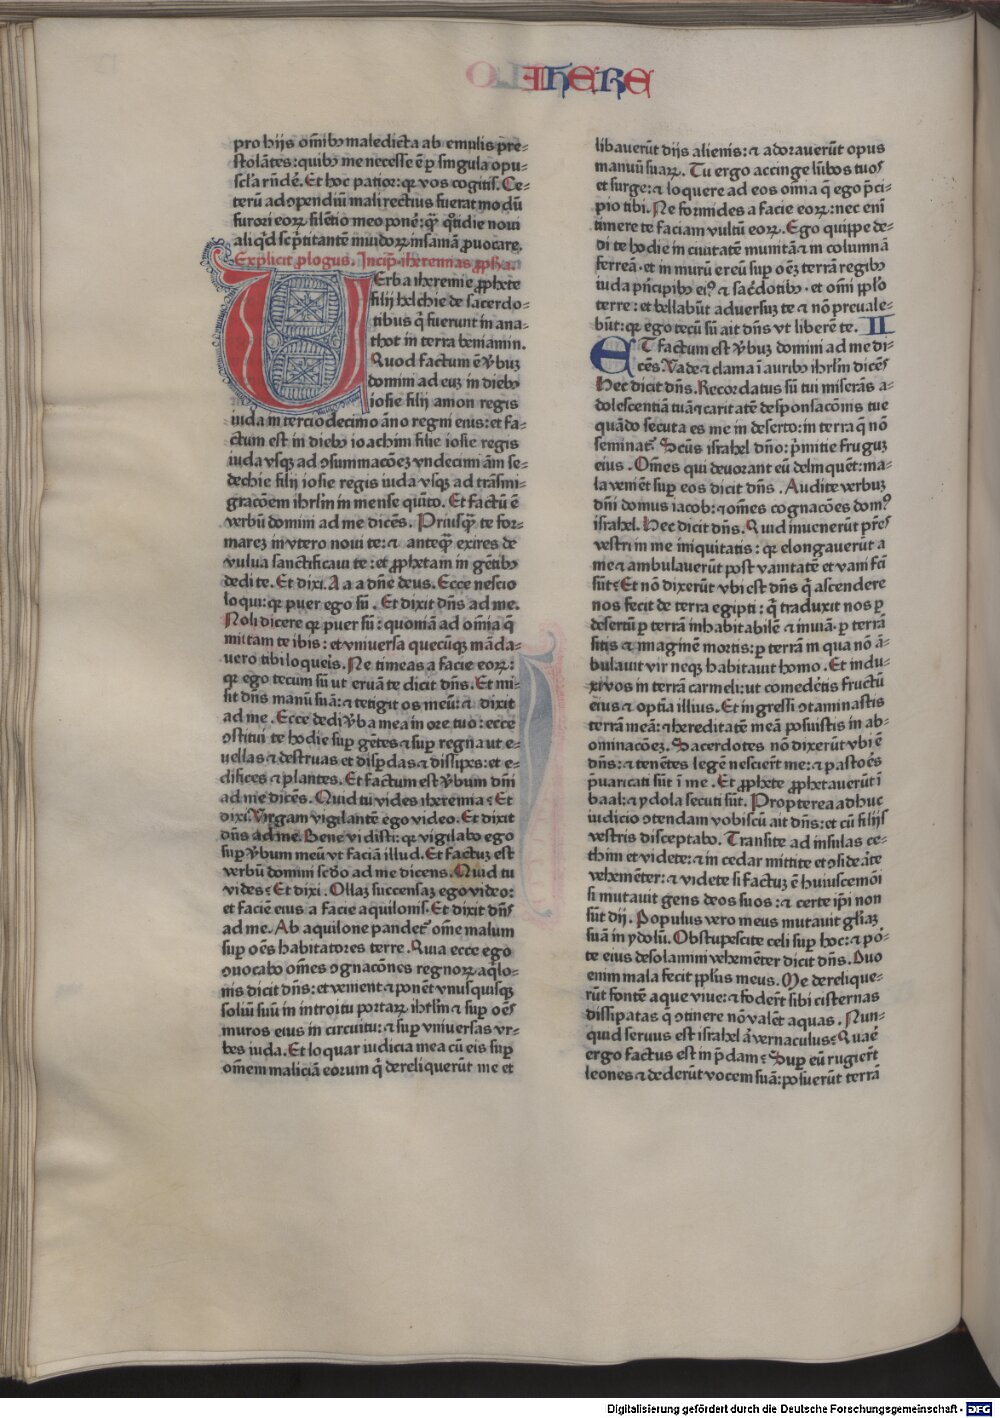 IHERE
pro hijs om̄ibꝫ maledicta ab emulis pre⸗
stolātes: quibꝫ me necesse ē ꝑ singula opu⸗
scĺa rn̄dē. Et hoc patior: qꝛ vos cogitis. Ce⸗
terū ad ꝯpendiū mali rectius fuerat modū
furori eoꝝ silētio meo ponē: qᷓꝫ qͦtidie noui
aliqͥd scͥptitantē inuidoꝝ insaniā ꝓuocare.
Explicit ꝓlogus. Incipͭ iheremias ꝓpha.
VErba iheremie ꝓphete
filij helchie de sacerdo⸗
tibus qͥ fuerunt in ana⸗
thot in terra beniamin.
Quod factum ē v̄buꝫ
domini ad euꝫ in diebꝫ
iosie filij amon regis
iuda in terciodecimo āno regni eius: et fa⸗
ctum est in diebꝫ ioachim filie iosie regis
iuda vsqꝫ ad ꝯsummacōeꝫ vndecimi āni se⸗
dechie filij iosie regis iuda vsqꝫ ad trāsmi⸗
gracōem ihrlm̄ in mense quīto. Et factū ē
verbū domini ad me dicēs. Priusqᷓꝫ te for⸗
mareꝫ in vtero noui te: ⁊ anteqᷓꝫ exires de
vulua sanctificaui te: et ꝓphetam in gētibꝫ
dedi te. Et dixi. A a a dn̄e deus. Ecce nescio
loqui: qꝛ puer ego sū. Et dixit dn̄s ad me.
Noli dicere qꝛ puer sū: quoniā ad om̄ia q̄
mittam te ibis: et vniuersa quecūqꝫ māda⸗
uero tibi loqueris. Ne timeas a facie eoꝝ:
qꝛ ego tecum sū ut eruā te dicit dn̄s. Et mi⸗
sit dn̄s manū suā: ⁊ tetigit os meū: ⁊ dixit
ad me. Ecce dedi v̄ba mea in ore tuo: ecce
ꝯstitui te hodie suꝑ gētes ⁊ suꝑ regna ut e⸗
uellas ⁊ destruas et disꝑdas ⁊ dissipes: et e⸗
difices ⁊ plantes. Et factum est v̄bum dn̄i
ad me dicēs. Quid tu vides iheremia? Et
dixi. Virgam vigilantē ego video. Et dixit
dn̄s ad me. Bene vidisti: qꝛ vigilabo ego
suꝑ v̄bum meū vt faciā illud. Et factuꝫ est
verbū domini scd̄o ad me dicens. Quid tu
vides? Et dixi. Ollaꝫ succensaꝫ ego video:
et faciē eius a facie aquilonis. Et dixit dn̄s
ad me. Ab aquilone pandet᷑ om̄e malum
suꝑ om̄es habitatores terre. Quia ecce ego
ꝯuocabo om̄es ꝯgnacōnes regnoꝝ aqͥlo⸗
nis dicit dn̄s: et venient ⁊ ponēt vnusquisqꝫ
soliū suū in introitu portaꝝ ihrlm̄ ⁊ suꝑ om̄es
muros eius in circuitu: ⁊ suꝑ vniuersas vr⸗
bes iuda. Et loquar iudicia mea cū eis suꝑ
om̄em maliciā eorum qͥ dereliquerūt me et
libauerūt dijs alienis: ⁊ adorauerūt opus
manuū suaꝝ. Tu ergo accinge lūbos tuos
et surge: ⁊ loquere ad eos om̄ia q̄ ego p̄ci⸗
pio tibi. Ne formides a facie eoꝝ: nec enī
timere te faciam vultū eoꝝ. Ego quippe de⸗
di te hodie in ciuitatē munitā ⁊ in columnā
ferreā ⁊ in murū ereū suꝑ om̄eꝫ terrā regibꝫ
iuda pͥncipibꝫ eiꝰ ⁊ sac̄dotibꝫ ⁊ om̄i ppl̄o
terre: et bellabūt aduersuꝫ te ⁊ nō preuale⸗
būt: qꝛ ego tecū sū ait dn̄s vt liberē te. II
ET factum est v̄buꝫ domini ad me di⸗
cēs. Vade ⁊ clama ī auribꝫ ihrlm̄ dicēs
Hec dicit dn̄s. Recordatus sū tui miserās a⸗
dolescentiā tuā ⁊ caritatē desponsacōnis tue
quādo secuta es me in deserto: in terra q̄ nō
seminat᷑. Scūs israhel dn̄o: pͥmitie fruguꝫ
eius. Om̄es qui deuorant eū delinquēt: ma⸗
la venient suꝑ eos dicit dn̄s. Audite verbuꝫ
dn̄i domus iacob: ⁊ om̄es cognacōes domꝰ
israhel. Hec dicit dn̄s. Quid inuenerūt pr̄es
vestri in me iniquitatis: qꝛ elongauerūt a
me ⁊ ambulauerūt post vanitatē et vani fcī
sūt? Et nō dixerūt vbi est dn̄s qͥ ascendere
nos fecit de terra egipti: qͥ traduxit nos ꝑ
desertū ꝑ terrā inhabitabilē ⁊ inuiā ꝑ terrā
sitis ⁊ imaginē mortis: ꝑ terrā in qua nō ā⸗
bulauit vir neqꝫ habitauit homo. Et indu⸗
xi vos in terrā carmeli: ut comedētis fructū
eius ⁊ optīa illius. Et ingressi ꝯtaminastis
terrā meā: ⁊ hereditatē meā posuistis in ab⸗
ominacōeꝫ. Sacerdotes nō dixerūt vbi ē
dn̄s: ⁊ tenētes legē nescierūt me: ⁊ pastores
p̄uaricati sūt ī me. Et ꝓphete ꝓphetauerūt ī
baal: ⁊ ydola secuti sūt. Propterea adhuc
iudicio ꝯtendam vobiscū ait dn̄s: et cū filijs
vestris disceptabo. Transite ad insulas ce⸗
thim et videte: ⁊ in cedar mittite et ꝯsideāte
vehemēter: ⁊ videte si factuꝫ ē huiuscemōi
si mutauit gens deos suos: ⁊ certe ip̄i non
sūt dij. Populus vero meus mutauit gl̄iaꝫ
suā in ydolū. Obstupescite celi suꝑ hoc: ⁊ por⸗
te eius desolamini vehemēter dicit dn̄s. Duo
enim mala fecit ppl̄us meus. Me derelique⸗
rūt fontē aque viue: ⁊ foder̄t sibi cisternas
dissipatas q̄ ꝯtinere nō valēt aquas. Nun⸗
quid seruus est israhel aut vernaculus? Quaē
ergo factus est in p̄dam? Suꝑ eū rugier̄t
leones ⁊ dederūt vocem suā: posuerūt terrā
Digitalisierung gefördert durch die Deutsche Forschungsgemeinschaft - DFG